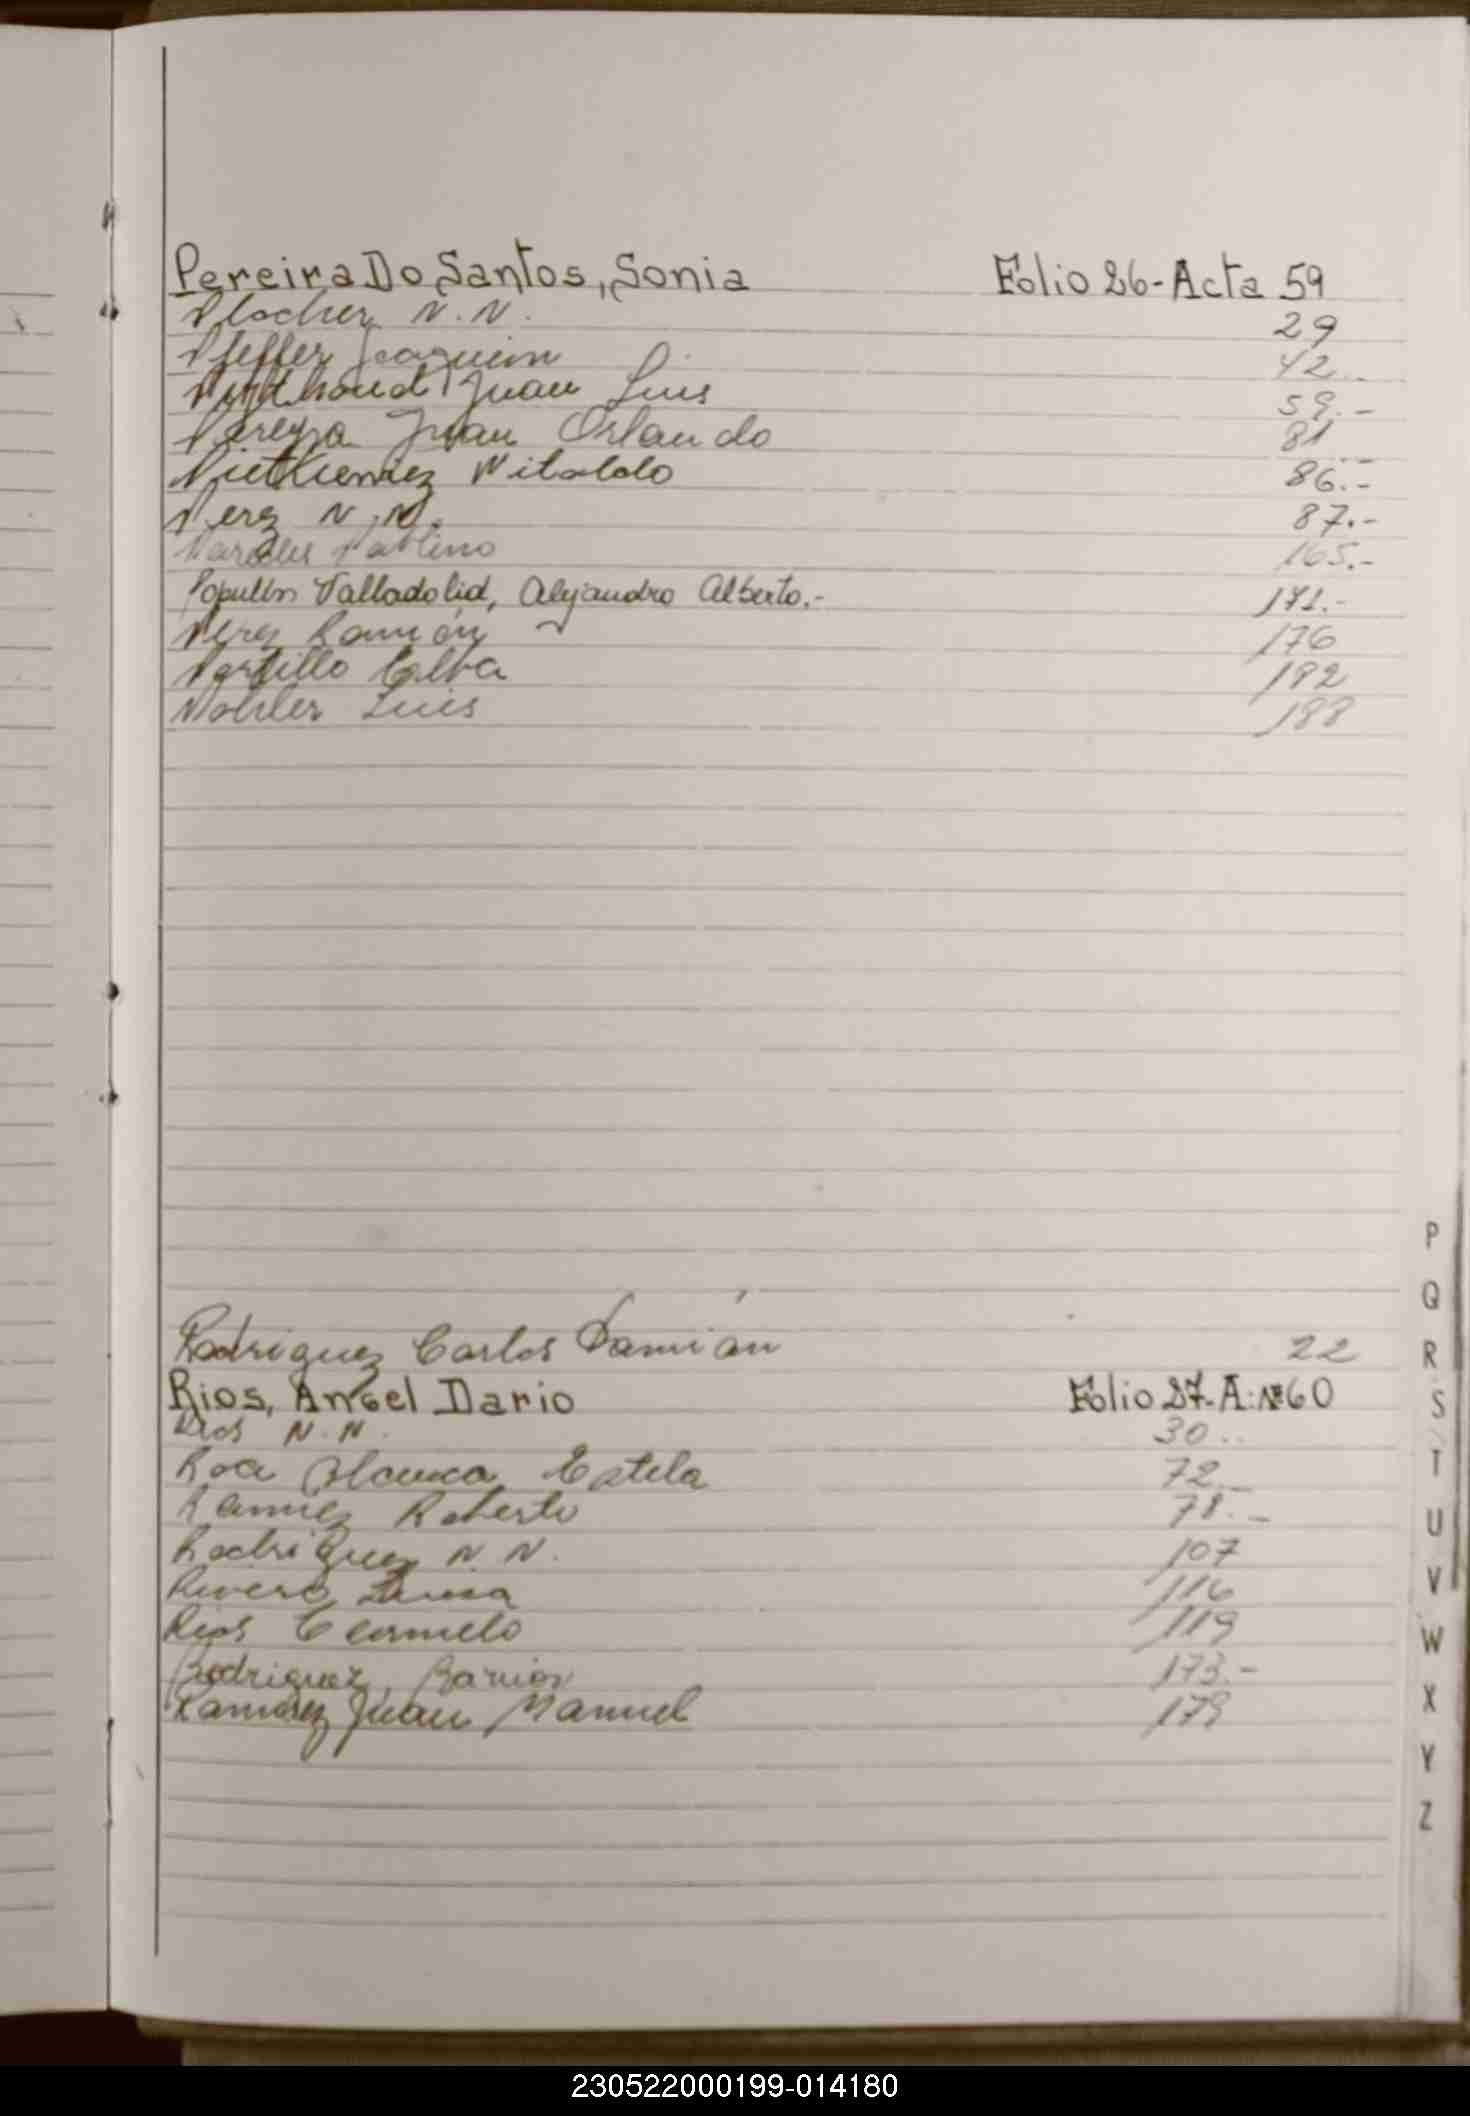 Pereira Do Santos, Sonia Folio 26-Acta 59
Plocher N.N. 29
Pfeffer Joaquin 42
Juan Luis 59.-
Pereyra Juan Orlando 81
Witoldo 86.-
Perez N.N. 87.-
Paredes Paulino 165.-
Valladolid, Alejandro Alberto.- 171.-
Perez Ramón 176
Portillo Elba 182
Luis 188
P
Q
Rodriguez Carlos Damián 22
R
Rios, Angel Dario Folio 27-A:Nº60
S
Rios N.N. 30..
T
Roa Blanca Estela 72.-
Ramirez Roberto 78.-
U
Rodriguez N N. 107
V
Rivero Luisa 116
Rios 119
W
Rodriguez, Ramón 173.-
X
Ramirez Juan Manuel 179
Y
Z
230522000199-014180